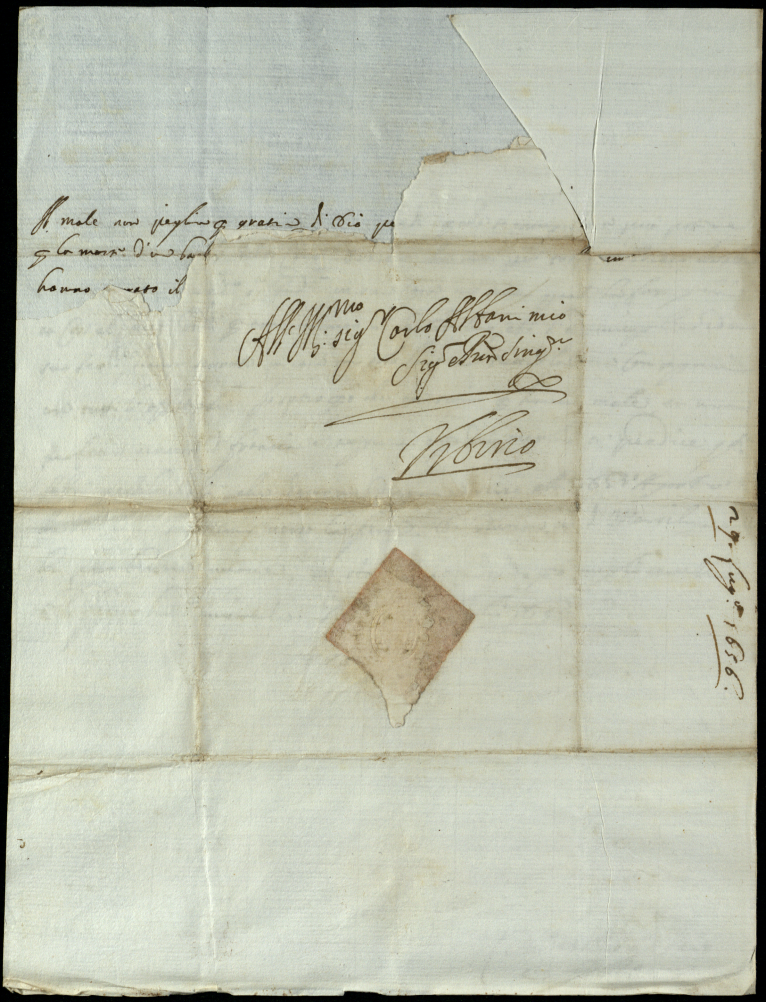 Il male non piglia p gratia di Dio pe
p la morte d'un
hanno il
All Ill.mo sig.r Carlo Albani mio
Sig.r e Pron Sing.r
Vrbino
29 lug.o 1656.